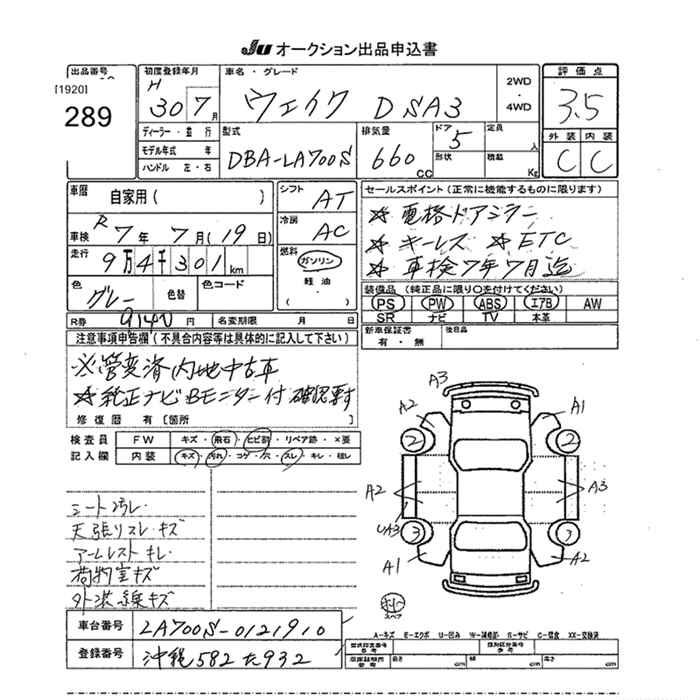 JU オークション出品申込書
出品番号
[1920]
289
初度登録年月
H 30 7月
車名・グレード
ウェイク D SA3
2WD
・
4WD
評価点
3.5
ディーラー・並行
モデル年式 年
ハンドル 左・右
型式
DBA-LA700S
排気量
660 CC
ドア
5
形状
定員
人
積載
Kg
外装 内装
C C
車歴 自家用( )
車検 R 7年 7月(19日)
走行 9万4千301km
色 グレー
色替
色コード
R券 9140円
名変期限 月 日
シフト AT
冷房 AC
燃料
ガソリン
軽油
セールスポイント(正常に機能するものに限ります)
☆電格ドアミラー
☆キーレス ☆ETC
☆車検7年7月迄
装備品(純正品に限り○を付けてください)
PS PW ABS エアB AW
SR ナビ TV 本革
新車保証書 有・無
後日品
注意事項申告欄(不具合内容等は具体的に記入して下さい)
※管変済内地中古車
☆純正ナビBモニター付 確認要す
修復歴 有[箇所 ]
検査員記入欄
FW キズ・飛石・ヒビ割・リペア跡・×要
内装 キズ・汚れ・コゲ・穴・スレ・キレ・破レ
シート汚レ
天張りスレキズ
アームレストキレ
荷物室キズ
外装線キズ
A3
A2 A1
2 2
A2 A3
UA3
3
A1 A2
スペア
車台番号 LA700S-0121910
登録番号 沖縄582た932
A-キズ E-エクボ U-凹み W-補修跡 S-サビ C-腐食 XX-交換済
長さ cm 幅 cm 高さ cm